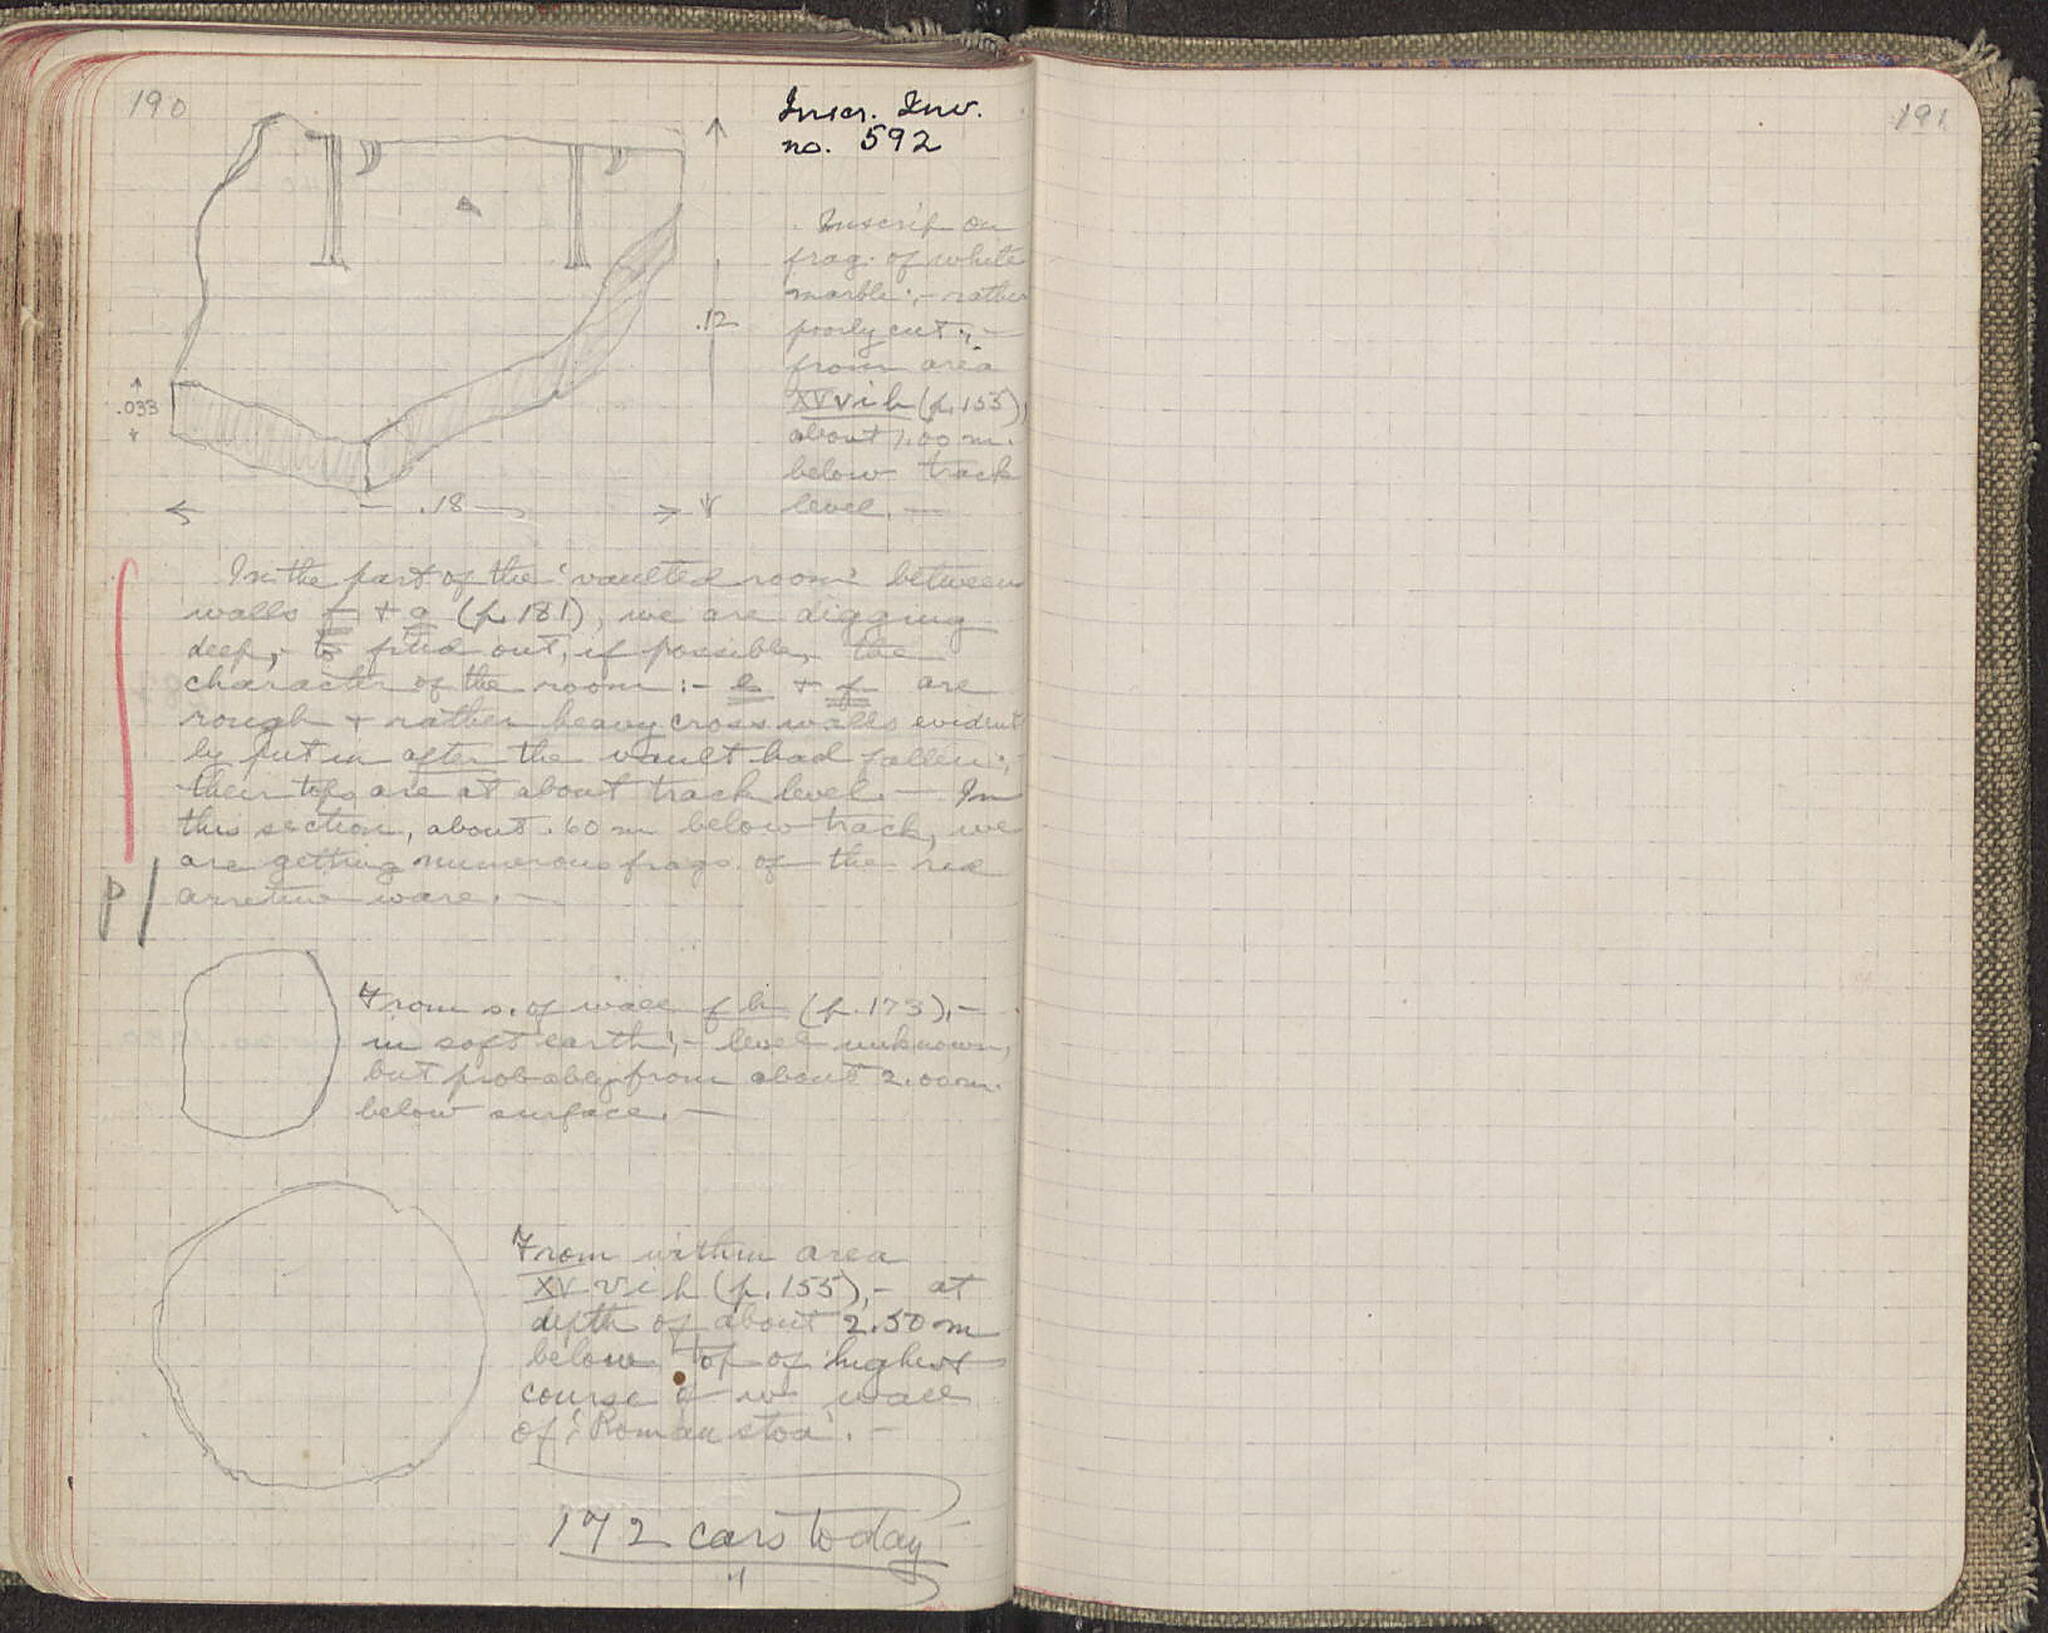 190
Inscr. Inv.
no. 592
Inscrip on
frag. of white
marble;- rather
poorly cut;-
from area
XV vi h (p. 155),
about 1.00 m.
below track
level.—
.12
.033
.18
In the part of the 'vaulted room' between
walls f + e (p. 181), we are digging
deep,- to find out, if possible, the
character of the room:- e + f are
rough + rather heavy cross walls evident
ly put in after the vault had fallen;-
their tops are at about track level.— In
this section, about .60 m below track, we
are getting numerous frags. of the red
arretine ware.—
P
From s. of wall f h (p. 173),-
in soft earth;- level unknown,
but probably from about 2.00 m.
below surface.—
From within area
XV vi h (p. 155),- at
depth of about 2.50 m
below top of highest
course of w wall
of 'Roman stoa'.—
172 cars today
191